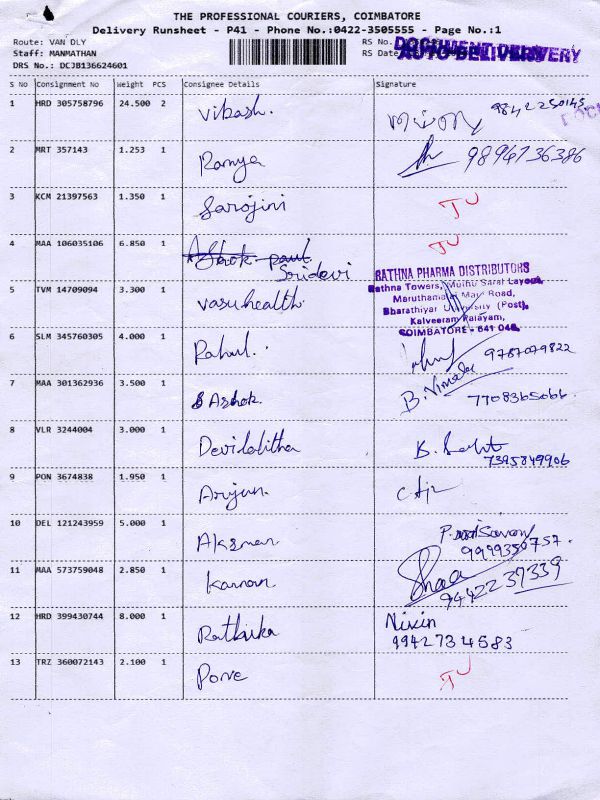 THE PROFESSIONAL COURIERS, COIMBATORE
Delivery Runsheet - P41 - Phone No.:0422-3505555 - Page No.:1
Route: VAN DLY RS No.
Staff: MANMATHAN RS Date
AUTO DELIVERY
DRS No.: DCJB136624601
S No Consignment No Weight PCS Consignee Details Signature
1 HRD 305758796 24.500 2 Vikash.
2 MRT 357143 1.253 1 Ramya 9894736386
3 KCM 21397563 1.350 1 Sarojini TU
4 MAA 106035106 6.850 1 Ashok paul TU
Sridevi
RATHNA PHARMA DISTRIBUTORS
Rathna Towers, Muthu Sarai Layout,
5 TVM 14709094 3.300 1 Vasuhealth. Road,
Bharathiyar University (Post),
Kalveeram Palayam,
COIMBATORE - 641 046.
6 SLM 345760305 4.000 1 Rahul. 9787079822
7 MAA 301362936 3.500 1 Ashok. B. Vimala 7708365066.
8 VLR 3244004 3.000 1 Devilalitha
7395849906
9 PON 3674838 1.950 1 Arjun.
10 DEL 121243959 5.000 1
9999350757.
11 MAA 573759048 2.850 1 Kannan 9442237339
12 HRD 399430744 8.000 1 Nixin
9942734583
13 TRZ 360072143 2.100 1 TU